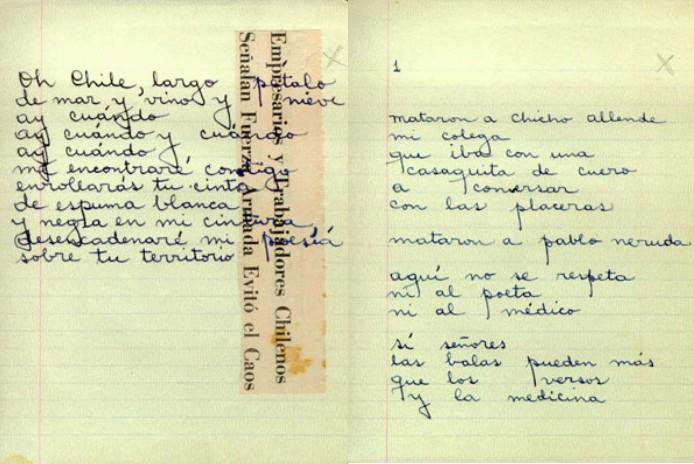 Oh Chile, largo pétalo
de mar y vino y nieve
ay cuándo
ay cuándo y cuándo
ay cuándo
me encontraré contigo
enrollarás tu cinta
de espuma blanca
y negra en mi cintura
desencadenaré mi poesía
sobre tu territorio
Empresarios y Trabajadores Chilenos
Señalan Fuerza Armada Evitó el Caos
1
mataron a chicho allende
mi colega
que iba con una
casaquita de cuero
a conversar
con las placeras
mataron a pablo neruda
aquí no se respeta
ni al poeta
ni al médico
sí señores
las balas pueden más
que los versos
y la medicina